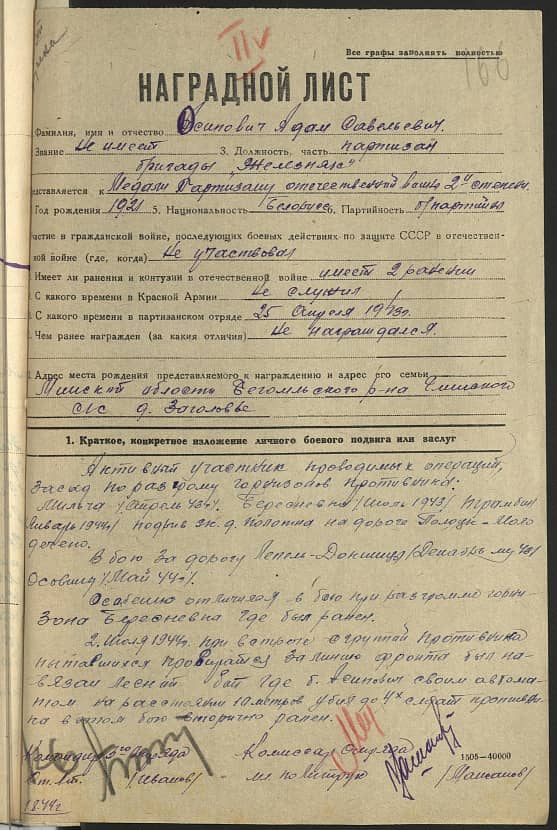 II
Все графы заполнять полностью
166
НАГРАДНОЙ ЛИСТ
Фамилия, имя и отчество Осипович Адам Савельевич.
Звание Не имеет 3. Должность, часть партизан
бригады "Железняк"
едставляется к Медали Партизану отечественной войны 2й степени.
Год рождения 1921 5. Национальность Белорусс 6. Партийность б/партийный
частие в гражданской войне, последующих боевых действиях по защите СССР в отечествен-
ной войне (где, когда) Не участвовал
Имеет ли ранения и контузии в отечественной войне имеет 2 ранения
С какого времени в Красной Армии Не служил
С какого времени в партизанском отряде 25 Апреля 1943г.
Чем ранее награжден (за какия отличия) Не награждался.
Адрес места рождения представляемого к награждению и адрес его семьи
Минской области Бегомльского р-на
с/с д. Заголовье
1. Краткое, конкретное изложение личного боевого подвига или заслуг
Активный участник проводимых операций,
засад по разгрому гарнизонов противника.
/Апрель 43г/. Бересневка /Июль 1943/
Январь 1944г/ подрыв ж.д. полотна на дороге Полоцк-Моло
дечено.
В бою за дорогу Лепель-Докшицы /Декабрь
Осовины /Май 44г/.
Особенно отличился в бою при разгроме гарни-
зона Бересневка где был ранен.
2. Июля 1944г. при встрече с группой противника
пытавшихся пробирайтся за линию фронта был на-
вязан лесной бой где т. Осипович своим автома-
том на расстоянии 10 метров убил до 4х солдат противни-
ка в этом бою вторично ранен.
Командир отряда Комиссар Отряда
1505-40000
Ст. Лт. /Иванов/ мл. политрук
1944г